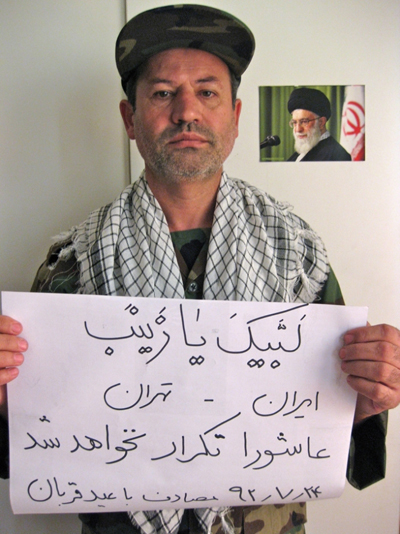 لَبَّیکَ یا زَینَب
ایران - تهران
عاشورا تکرار نخواهد شد
۹۲/۷/۲۴ مصادف با عید قربان